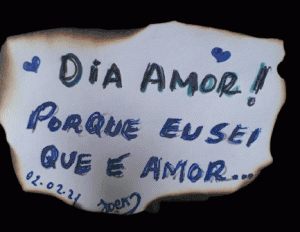 DIA AMOR!
PORQUE EU SEI
QUE É AMOR...
02.02.21